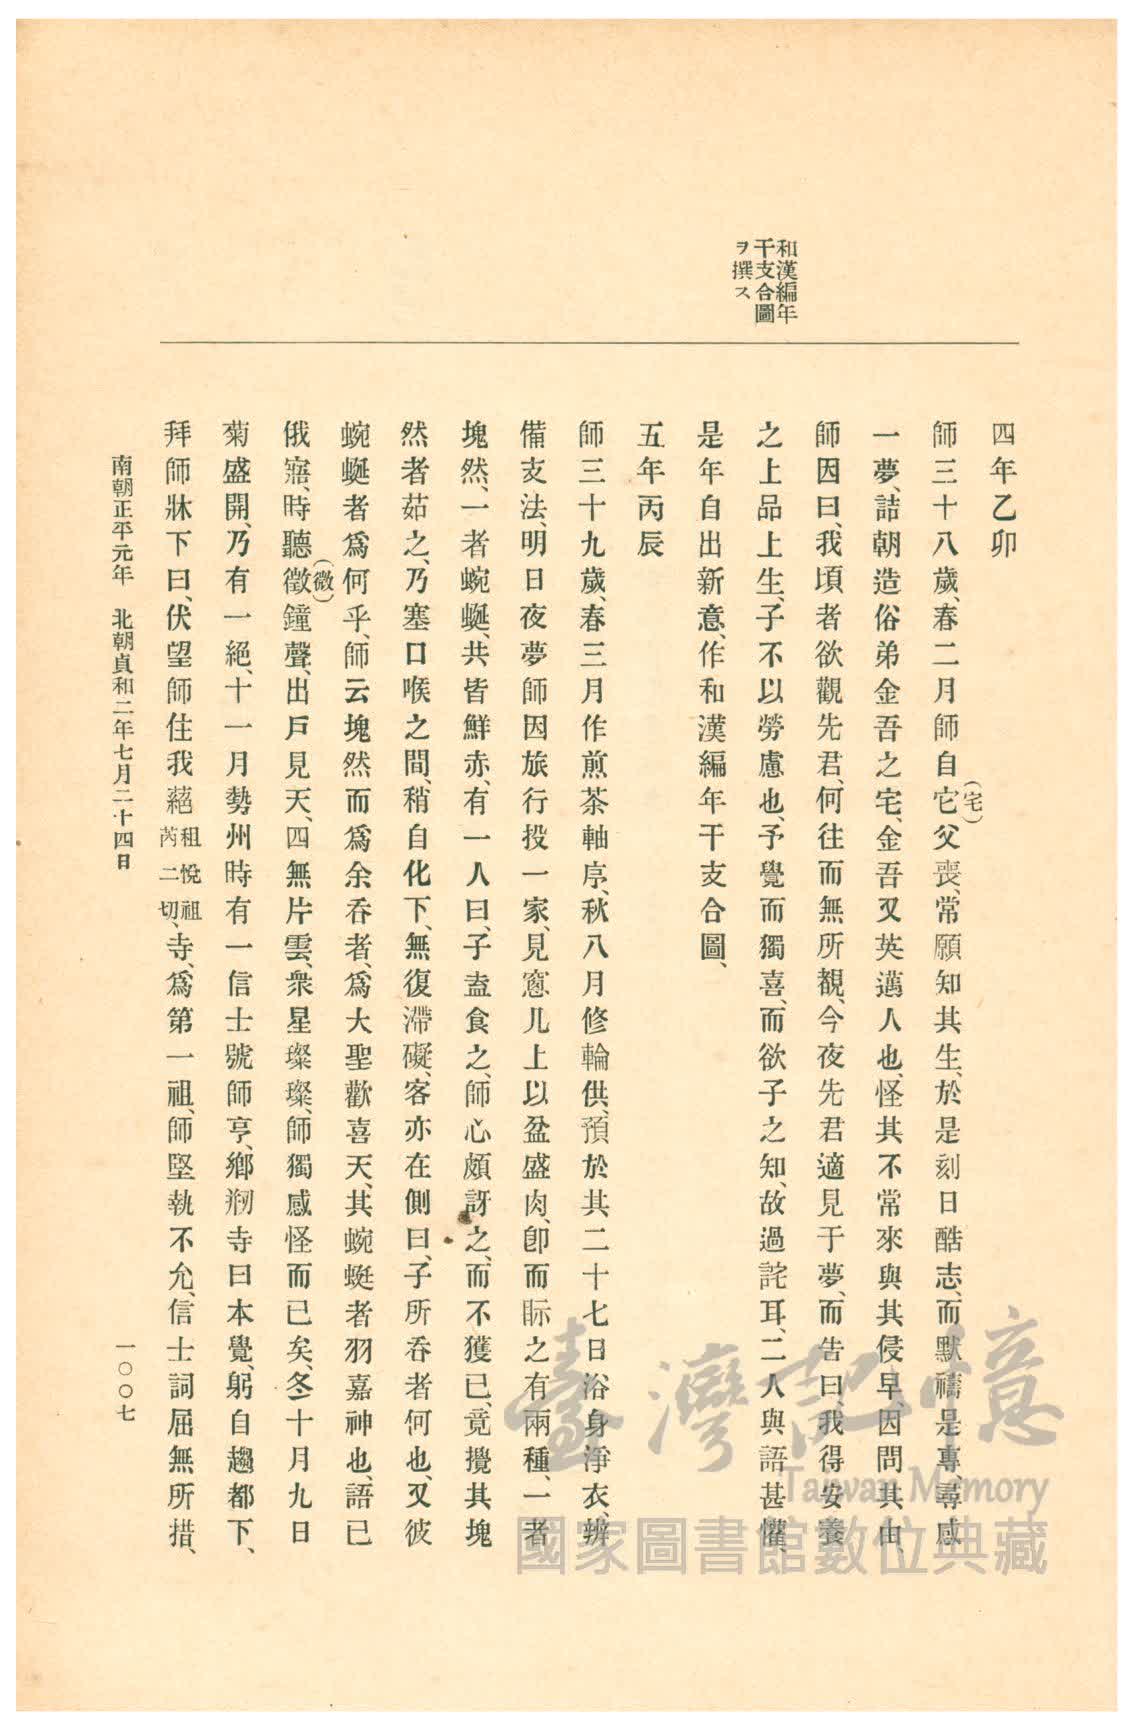 和漢編年
干支合圖
ヲ撰ス
四年乙卯
師三十八歲、春二月師自它(宅)父喪、常願知其生、於是刻日酷志、而默禱是專、尋感
一夢、詰朝造俗弟金吾之宅、金吾又英邁人也、怪其不常來與其侵早、因問其由、
師因曰、我頃者欲觀先君、何往而無所覩、今夜先君適見于夢、而告曰、我得安養
之上品上生、子不以勞慮也、予覺而獨喜、而欲子之知、故過詫耳、二人與語甚懽、
是年自出新意、作和漢編年干支合圖、
五年丙辰
師三十九歲、春三月作煎茶軸序、秋八月修輪供、預於其二十七日浴身淨衣、辨
備支法、明日夜夢師因旅行投一家、見窻儿上以盆盛肉、卽而眎之有兩種、一者
塊然、一者蜿蜒、共皆鮮赤、有一人曰、子盍食之、師心頗訝之、而不獲已、竟攪其塊
然者茹之、乃塞口喉之間、稍自化下、無復滯礙、客亦在側曰、子所呑者何也、又彼
蜿蜒者爲何乎、師云塊然而爲余呑者、爲大聖歡喜天、其蜿蜒者羽嘉神也、語已
俄寤、時聽徵(微)鐘聲、出戶見天、四無片雲、衆星璨璨、師獨感怪而已矣、冬十月九日
菊盛開、乃有一絕、十一月勢州時有一信士號師亨、鄉剏寺曰本覺、躬自趨都下、
拜師牀下曰、伏望師住我蕝祖悅祖芮二切、寺、爲第一祖、師堅執不允、信士詞屈無所措、
南朝正平元年 北朝貞和二年七月二十四日
一〇〇七
臺灣記憶
Taiwan Memory
國家圖書館數位典藏